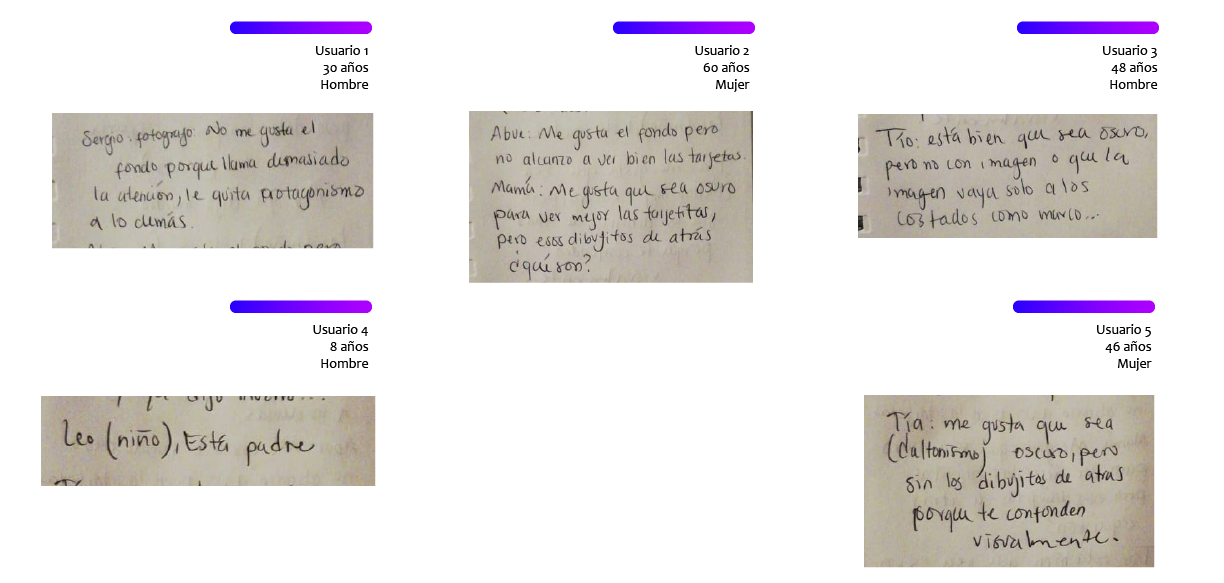 Usuario 1
30 años
Hombre
Sergio. fotografo: No me gusta el
fondo porque llama demasiado
la atención, le quita protagonismo
a lo demás.
Usuario 2
60 años
Mujer
Abue: Me gusta el fondo pero
no alcanzo a ver bien las tarjetas.
Mamá: Me gusta que sea osuro
para ver mejor las tarjetitas,
pero esos dibujitos de atrás
¿qué son?
Usuario 3
48 años
Hombre
Tío: está bien que sea osuro,
pero no con imagen o que la
imagen vaya solo a los
costados como marco...
Usuario 4
8 años
Hombre
Leo (niño), Está padre
Usuario 5
46 años
Mujer
Tía: me gusta que sea
(daltonismo) oscuro, pero
sin los dibujitos de atras
porque te confonden
visualmente.